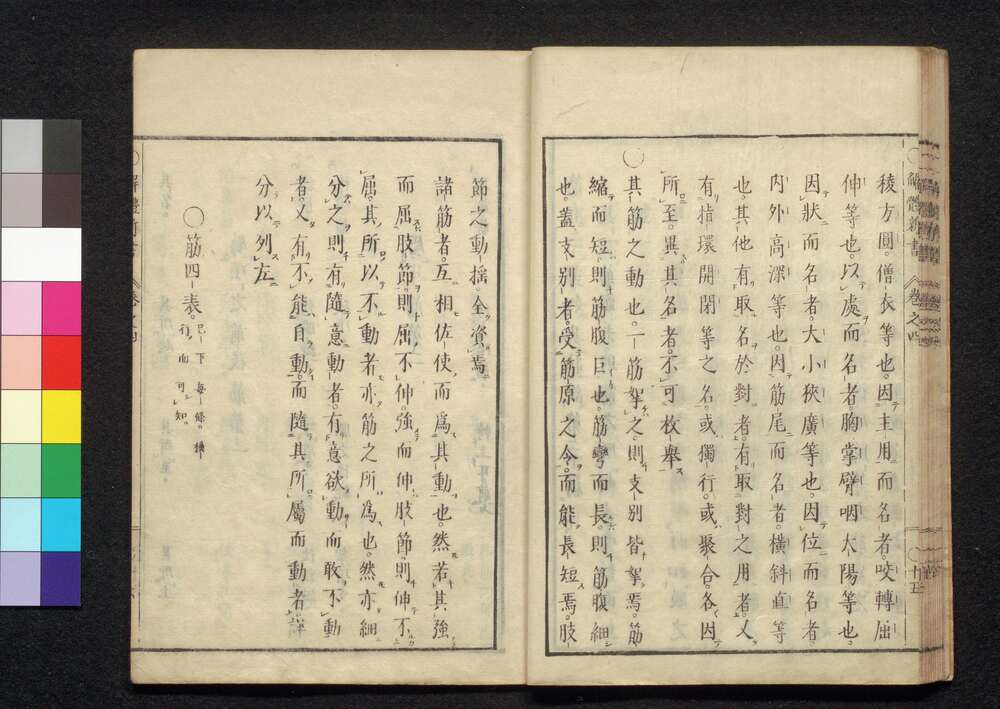 稜方圓。僧衣等也。因主用而名者。咬轉屈
伸等也。以處而名者胸掌臂咽太陽等也
因狀而名者。大小狹廣等也。因位而名者
内外高深等也。因筋尾而名者。橫斜直等
也。其他有取名於對者。有取對之用者。又
有指環開閉等之名。或獨行。或聚合。各因
所至。異其名者。不可枚舉。
〇其筋之動也。一筋挐之。則支別皆挐焉。筋
縮而短。則筋腹巨也。筋彎而長。則筋腹細
也。蓋支別者。受筋原之令。而能長短焉。肢
節之動搖。全資焉
諸筋者。互相佐使。而爲其動也。然若其強
而屈肢節。則屈不伸。強而伸肢節。則伸不
屈。其所以不動者。亦筋之所爲也。然亦細
分之。則有隨意動者。有意欲動而敢不動
者。又有不能自動。而隨其所屬而動者。詳
分以列左
〇筋四表。
已下每條轉
行而可知。
解體新書
卷之四
〇十五